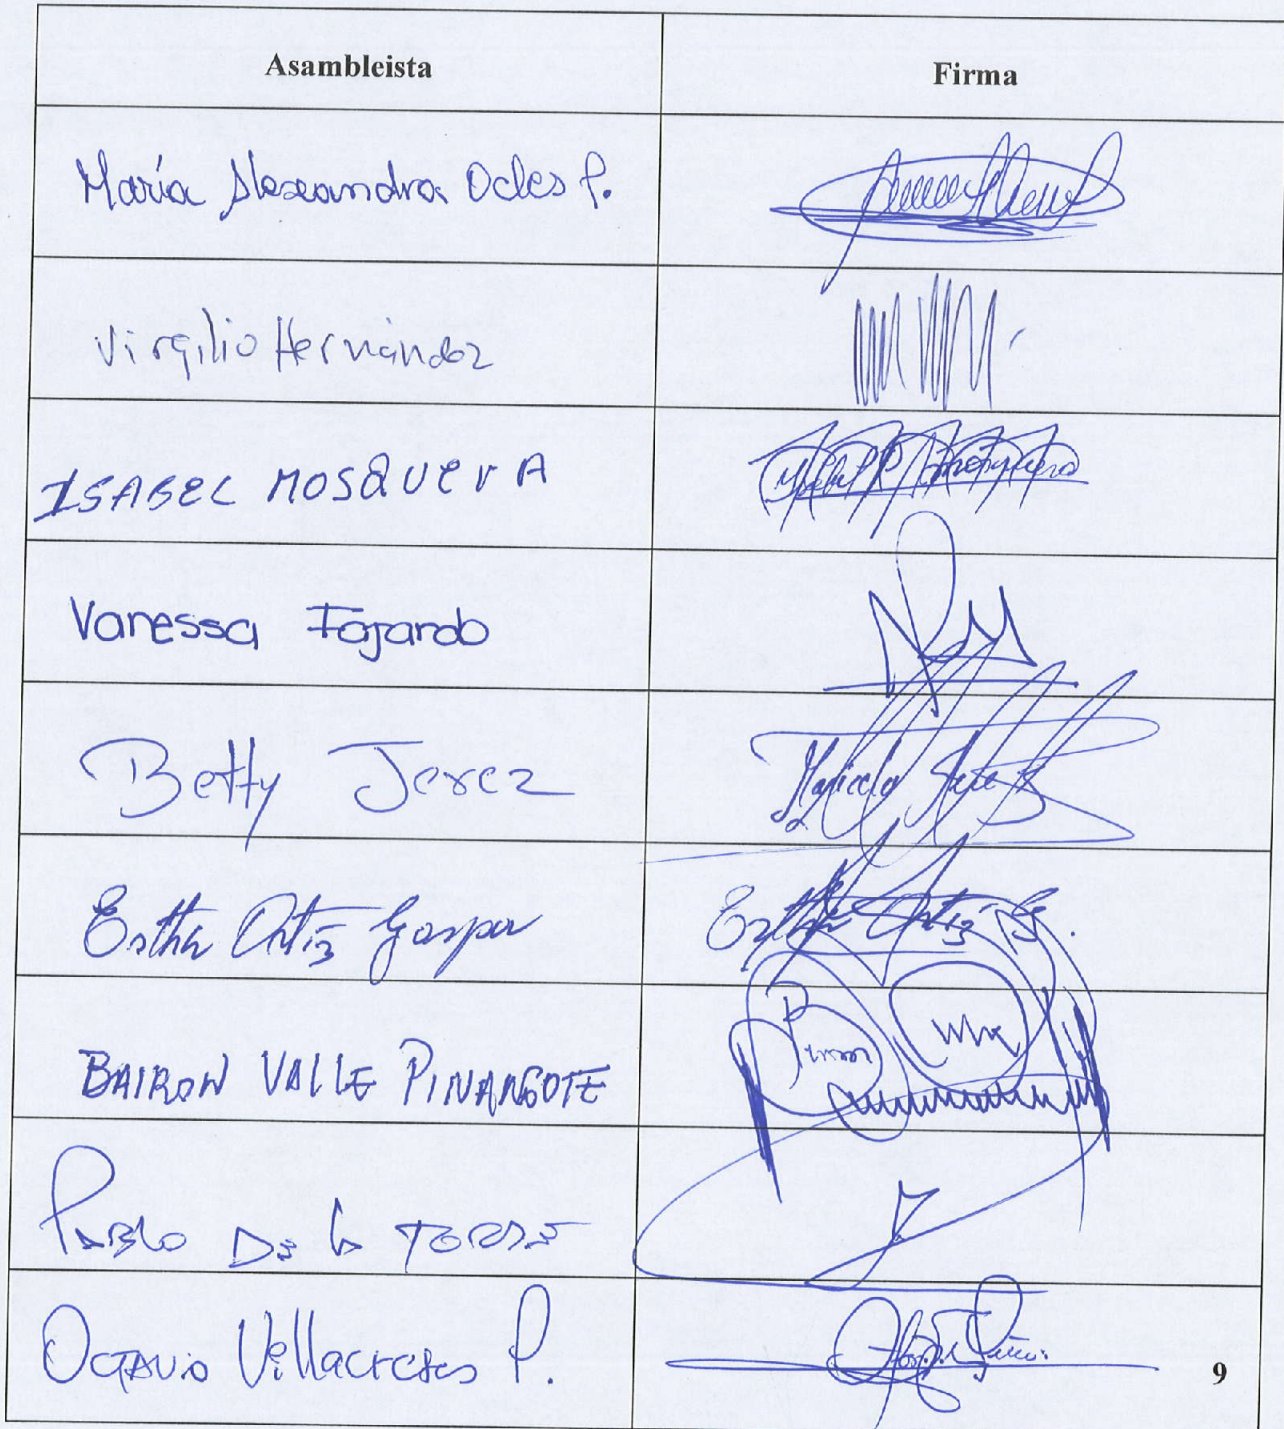 Asambleista Firma
María Alexandra Ocles P.
Virgilio Hernández
ISABEL MOSQUERA
Vanessa Fajardo
Betty Jerez
Esther Ortiz Gaspar Esther Ortiz G.
BAIRON VALLE PINARGOTE
PABLO DE LA TORRE
OCTAVIO Villacreses P.
9